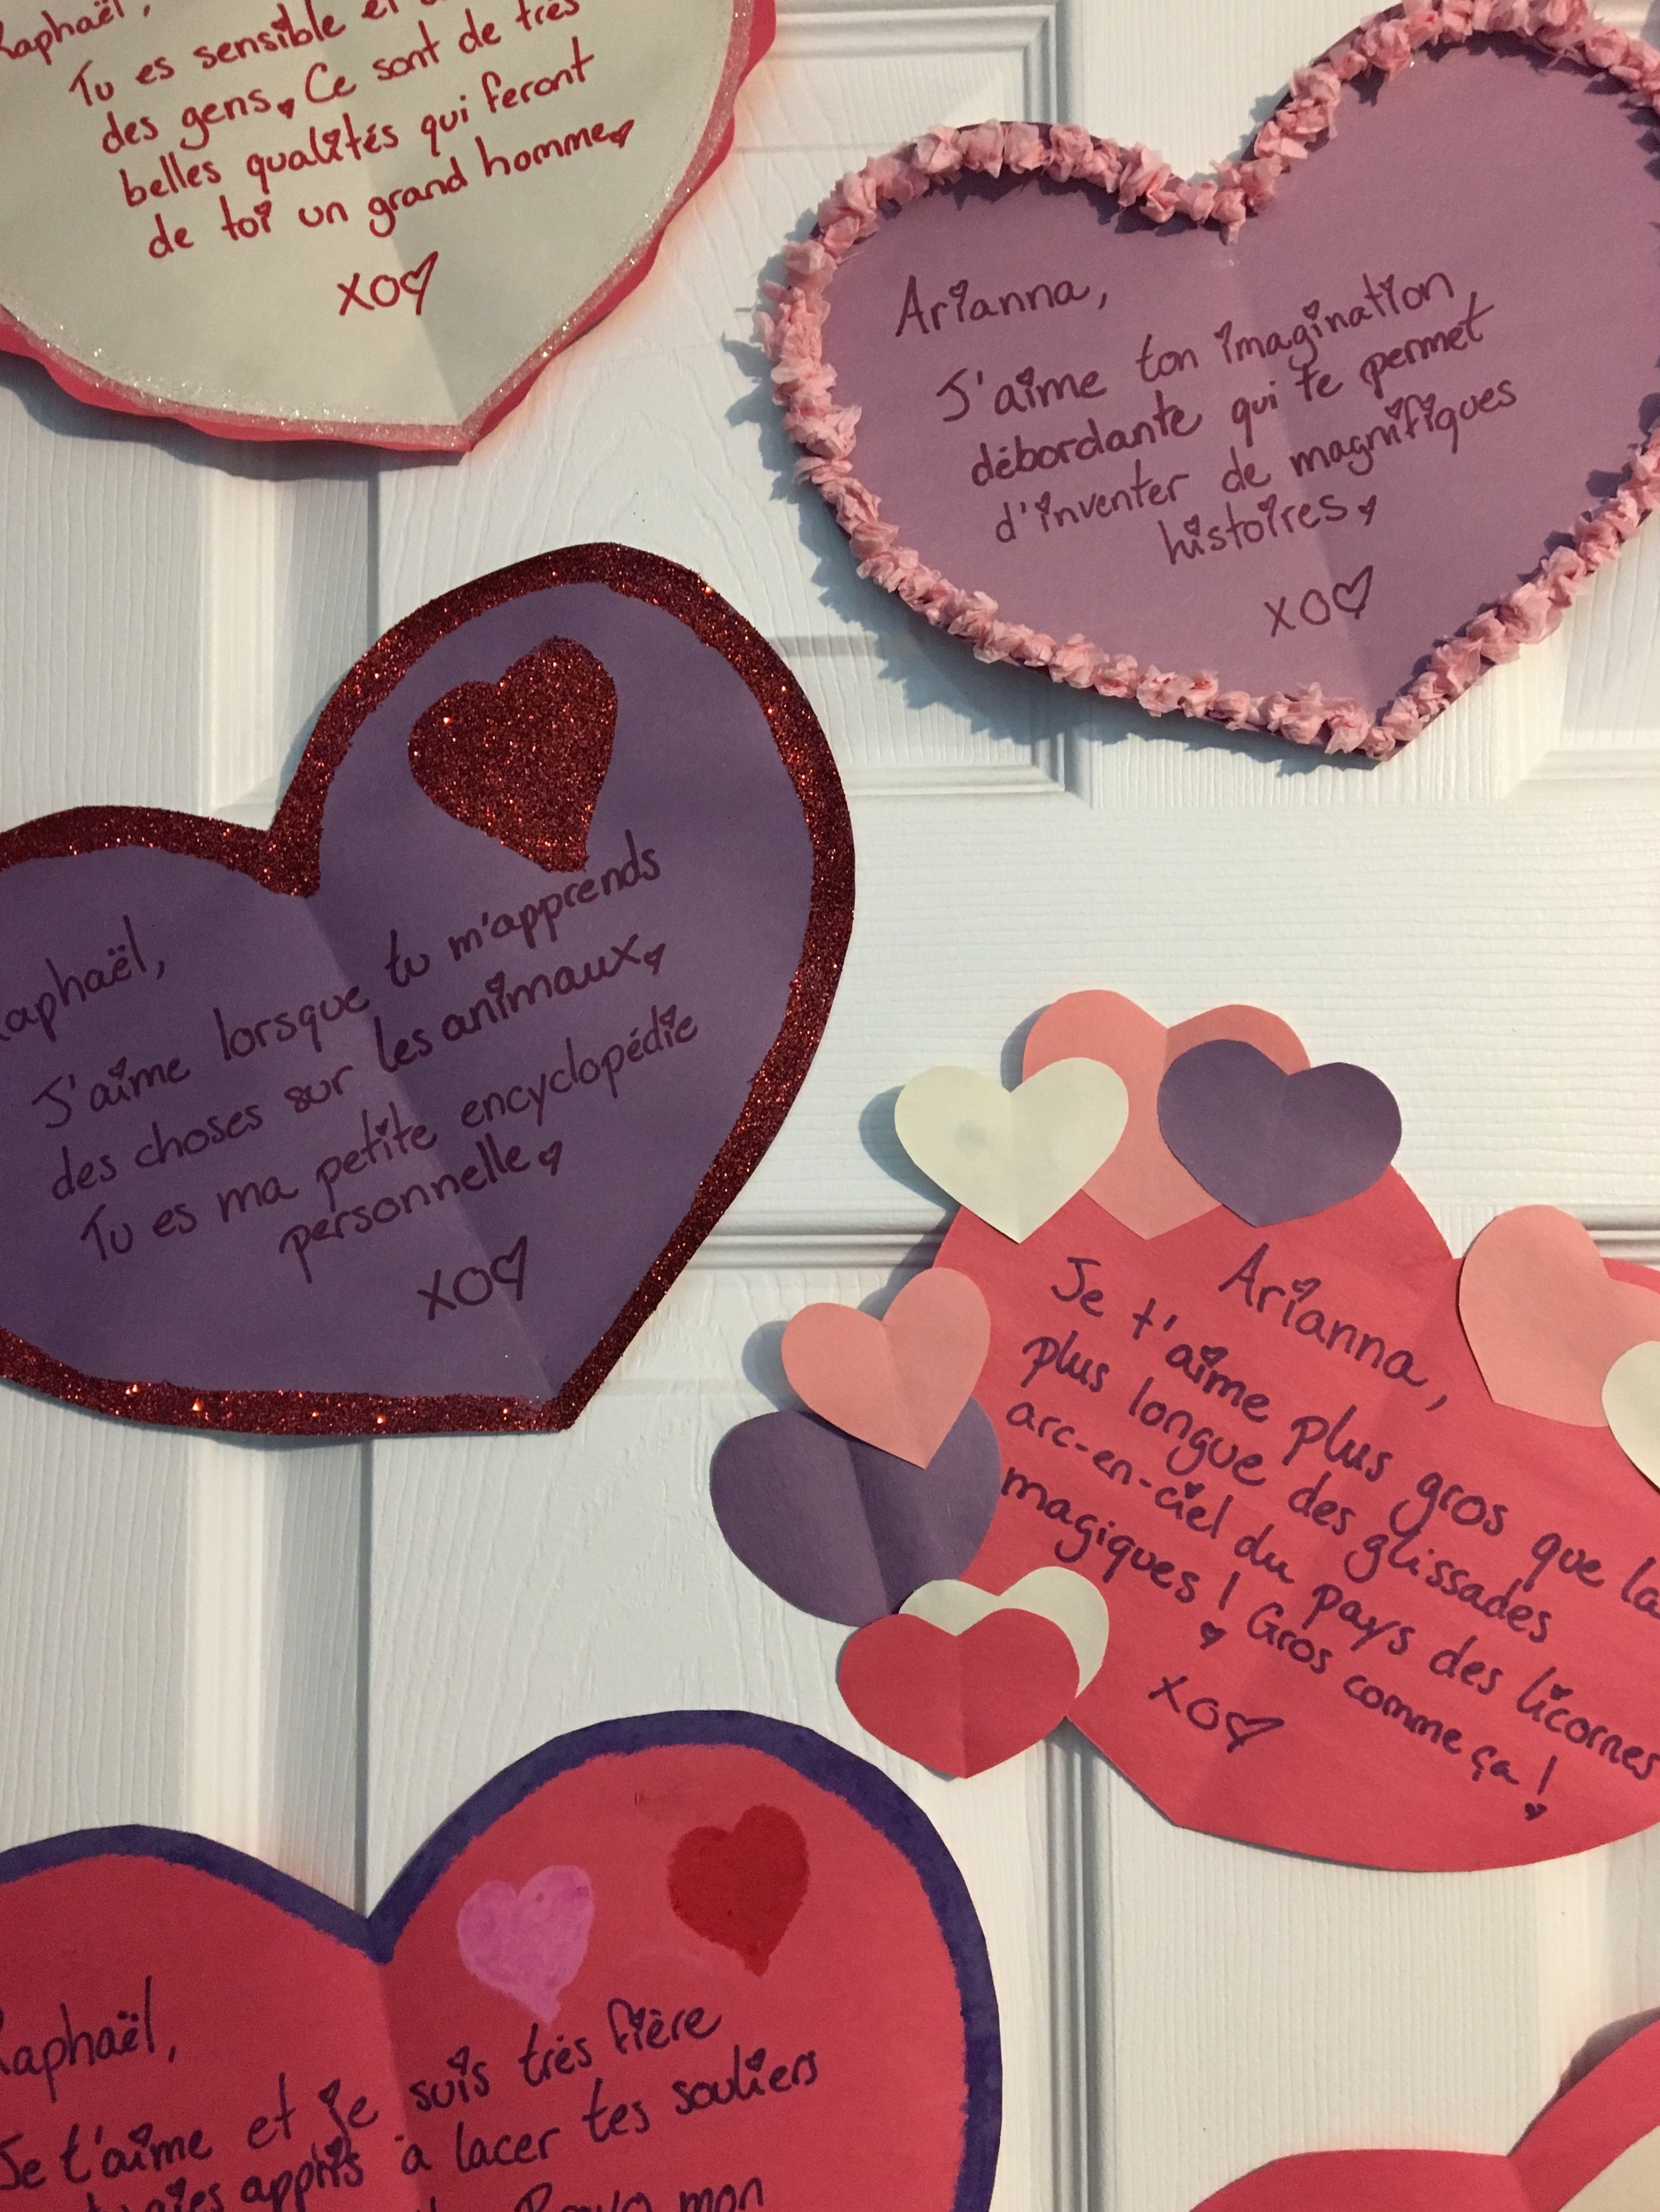 Raphaël,
Tu es sensible et
des gens. Ce sont de très
belles qualités qui feront
de toi un grand homme.
XO♡
Arianna,
J'aime ton imagination
débordante qui te permet
d'inventer de magnifiques
histoires.
XO♡
Raphaël,
J'aime lorsque tu m'apprends
des choses sur les animaux.
Tu es ma petite encyclopédie
personnelle.
XO♡
Arianna,
Je t'aime plus gros que la
plus longue des glissades
arc-en-ciel du pays des licornes
magiques ! Gros comme ça !
XO♡
Raphaël,
Je t'aime et je suis très fière
appris à lacer tes souliers
Bravo mon